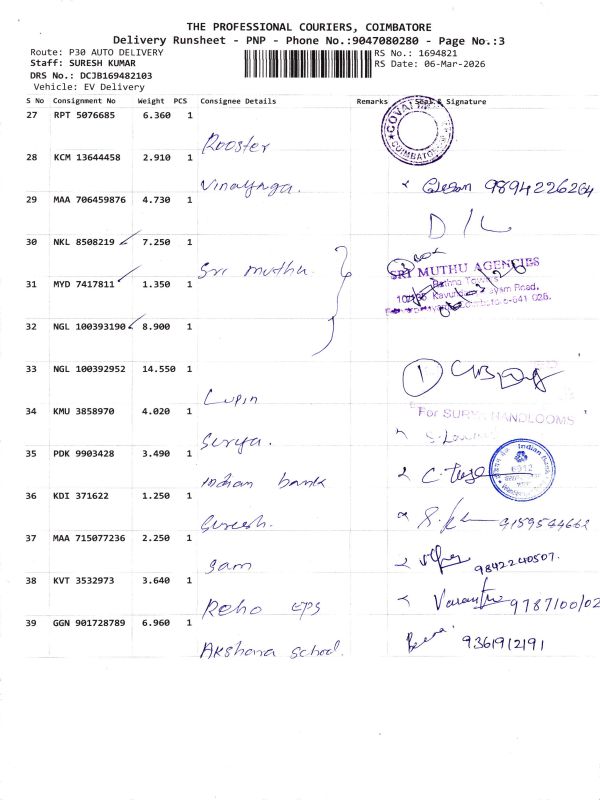 THE PROFESSIONAL COURIERS, COIMBATORE
Delivery Runsheet - PNP - Phone No.:9047080280 - Page No.:3
Route: P30 AUTO DELIVERY
RS No.: 1694821
Staff: SURESH KUMAR
RS Date: 06-Mar-2026
DRS No.: DCJB169482103
Vehicle: EV Delivery
S No Consignment No Weight PCS Consignee Details Remarks Seal & Signature
27 RPT 5076685 6.360 1
Rooster
COIMBATORE
28 KCM 13644458 2.910 1
Vinayaga. 9894226264
29 MAA 706459876 4.730 1
D/C
30 NKL 8508219 7.250 1
Sri muthu
SRI MUTHU AGENCIES
31 MYD 7417811 1.350 1
Road,
32 NGL 100393190 8.900 1
33 NGL 100392952 14.550 1
Lupin 1
34 KMU 3858970 4.020 1
For SURYA HANDLOOMS
Surya.
35 PDK 9903428 3.490 1
Indian Bank
Indian bank
36 KDI 371622 1.250 1
Suresh. 9159544662
37 MAA 715077236 2.250 1
Sam 9842240507.
38 KVT 3532973 3.640 1
Reho EPS
39 GGN 901728789 6.960 1
Akshara School. 9361912191